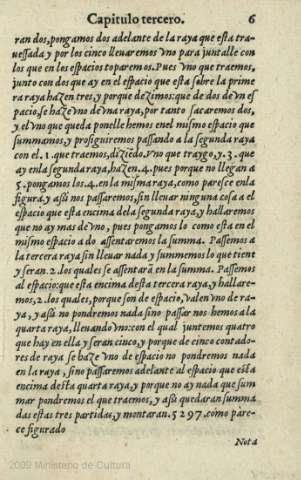 Capitulo tercero. 6
ran dos, pongamos dos adelante de la raya que esta tra-
uessada y por los cinco lleuaremos vno para juntalle con
los que en los espacios toparemos. Pues vno que traemos,
junto con dos que ay en el espacio que esta sobre la prime
ra raya hazen tres, y porque dezimos: que de dos de vn es
pacio, se haze vno de vna raya, por tanto sacaremos dos,
y el vno que queda ponelle hemos enel mismo espacio que
summamos, y prosiguiremos passando a la segunda raya
con el .1. que traemos, diziẽdo, vno que traygo, y .3. que
ay enla segunda raya, hazen .4. pues porque no llegan a
5. pongamos los .4. en la misma raya, como paresce enla
figura. y assi nos passaremos, sin lleuar ninguna cosa a el
espacio que esta encima dela segunda raya, y hallaremos
que no ay mas de vno, pues pongamos lo como esta en el
mismo espacio a do assentaremos la summa. Passemos a
la tercera raya sin lleuar nada y summemos lo que tiene
y seran .2. los quales se assentarã en la summa. Passemos
al espacio: que esta encima desta tercera raya, y hallare-
mos, 2. los quales, porque son de espacio, valen vno de ra-
ya, y assi no pondremos nada sino passar nos hemos a la
quarta raya, lleuando vno: con el qual juntemos quatro
que hay en ella y seran cinco, y porque de cinco contado-
res de raya se haze vno de espacio no pondremos nada
en la raya, sino passaremos adelante al espacio que esta
encima desta quarta raya, y porque no ay nada que sum
mar pondremos el que traemos, y assi quedaran summa
das estas tres partidas, y montaran. 5 2 9 7. como pare-
ce figurado
Nota
2009 Ministerio de Cultura